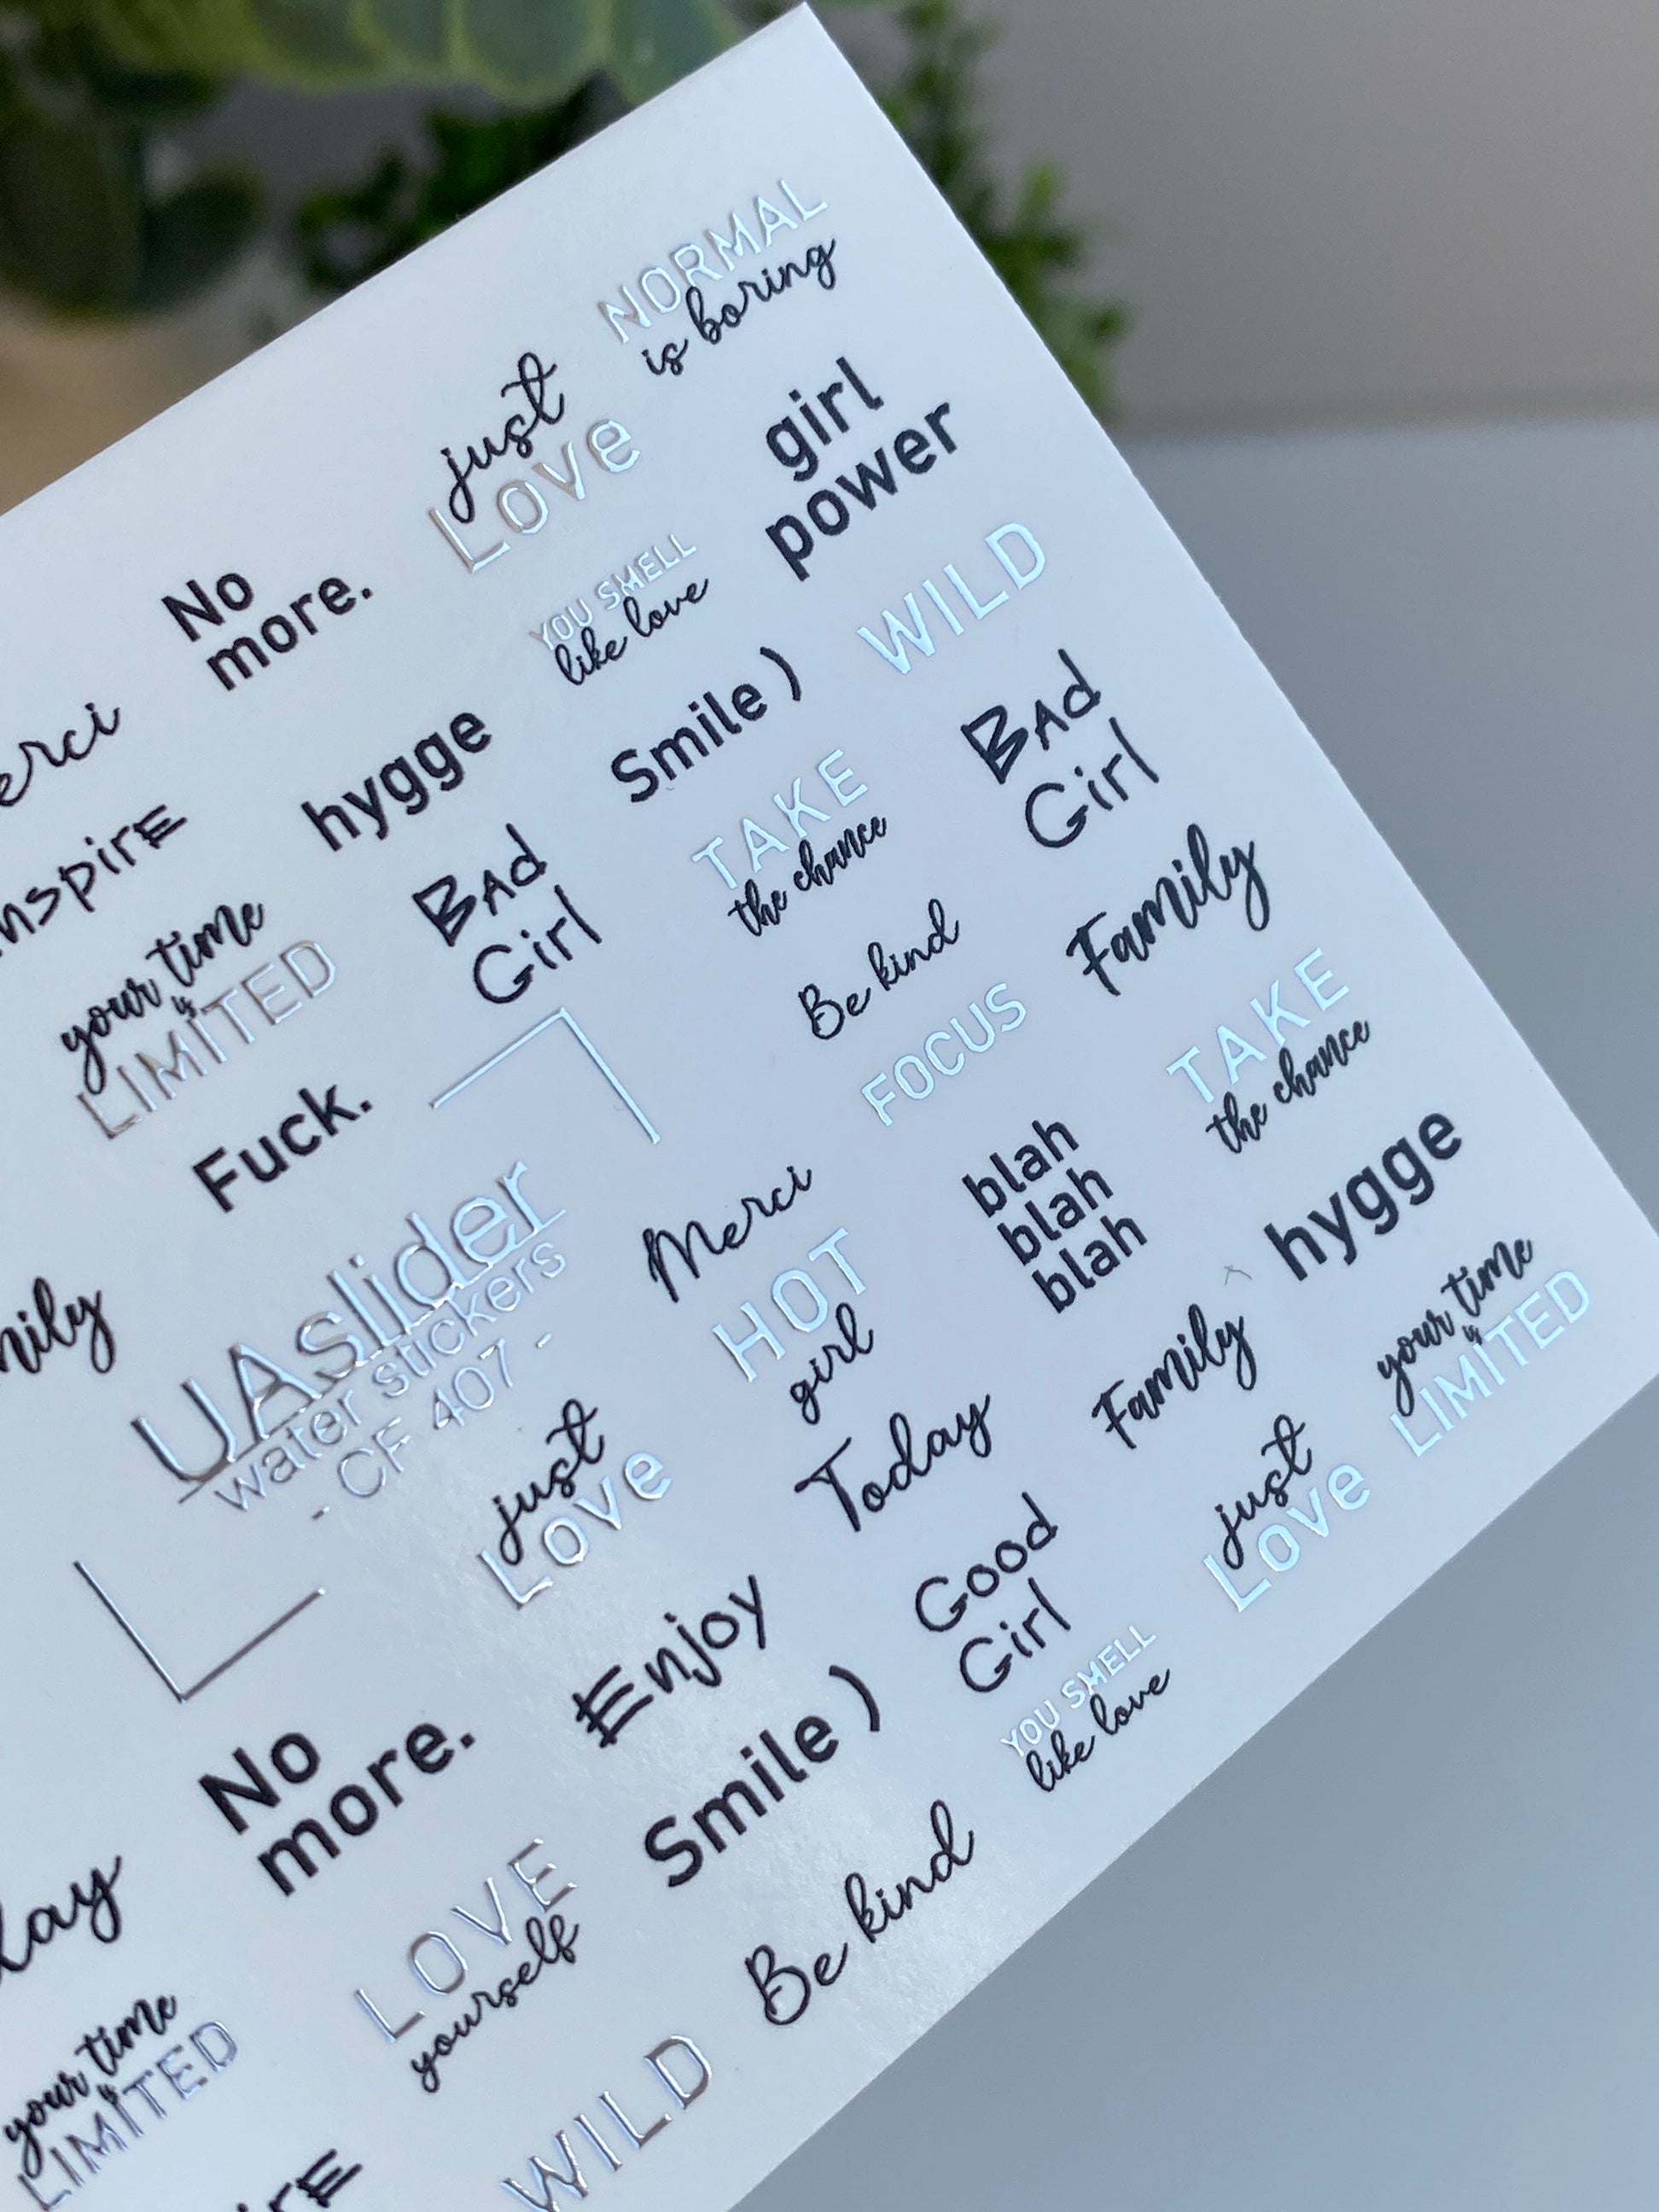 NORMAL
is boring
just
Love
girl
power
No
more.
YOU SMELL
like love
WILD
erci
hygge
Smile )
BAd
Girl
nspirE
BAd
Girl
TAKE
the chance
Family
your time
is
LIMITED
Be kind
FOCUS
TAKE
the chance
Fuck.
UAslider
water stickers
- CF 407 -
Merci
HOT
girl
blah
blah
blah
hygge
mily
just
Love
Today
Family
your time
is
LIMITED
Enjoy
Good
Girl
just
Love
No
more.
Smile )
YOU SMELL
like love
day
LOVE
yourself
Be kind
your time
is
LIMITED
WILD
irE